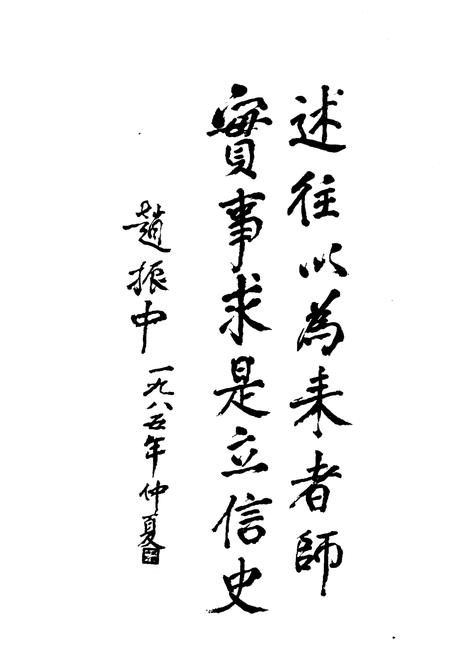 述往以為来者師
實事求是立信史
趙振中 一九八五年仲夏